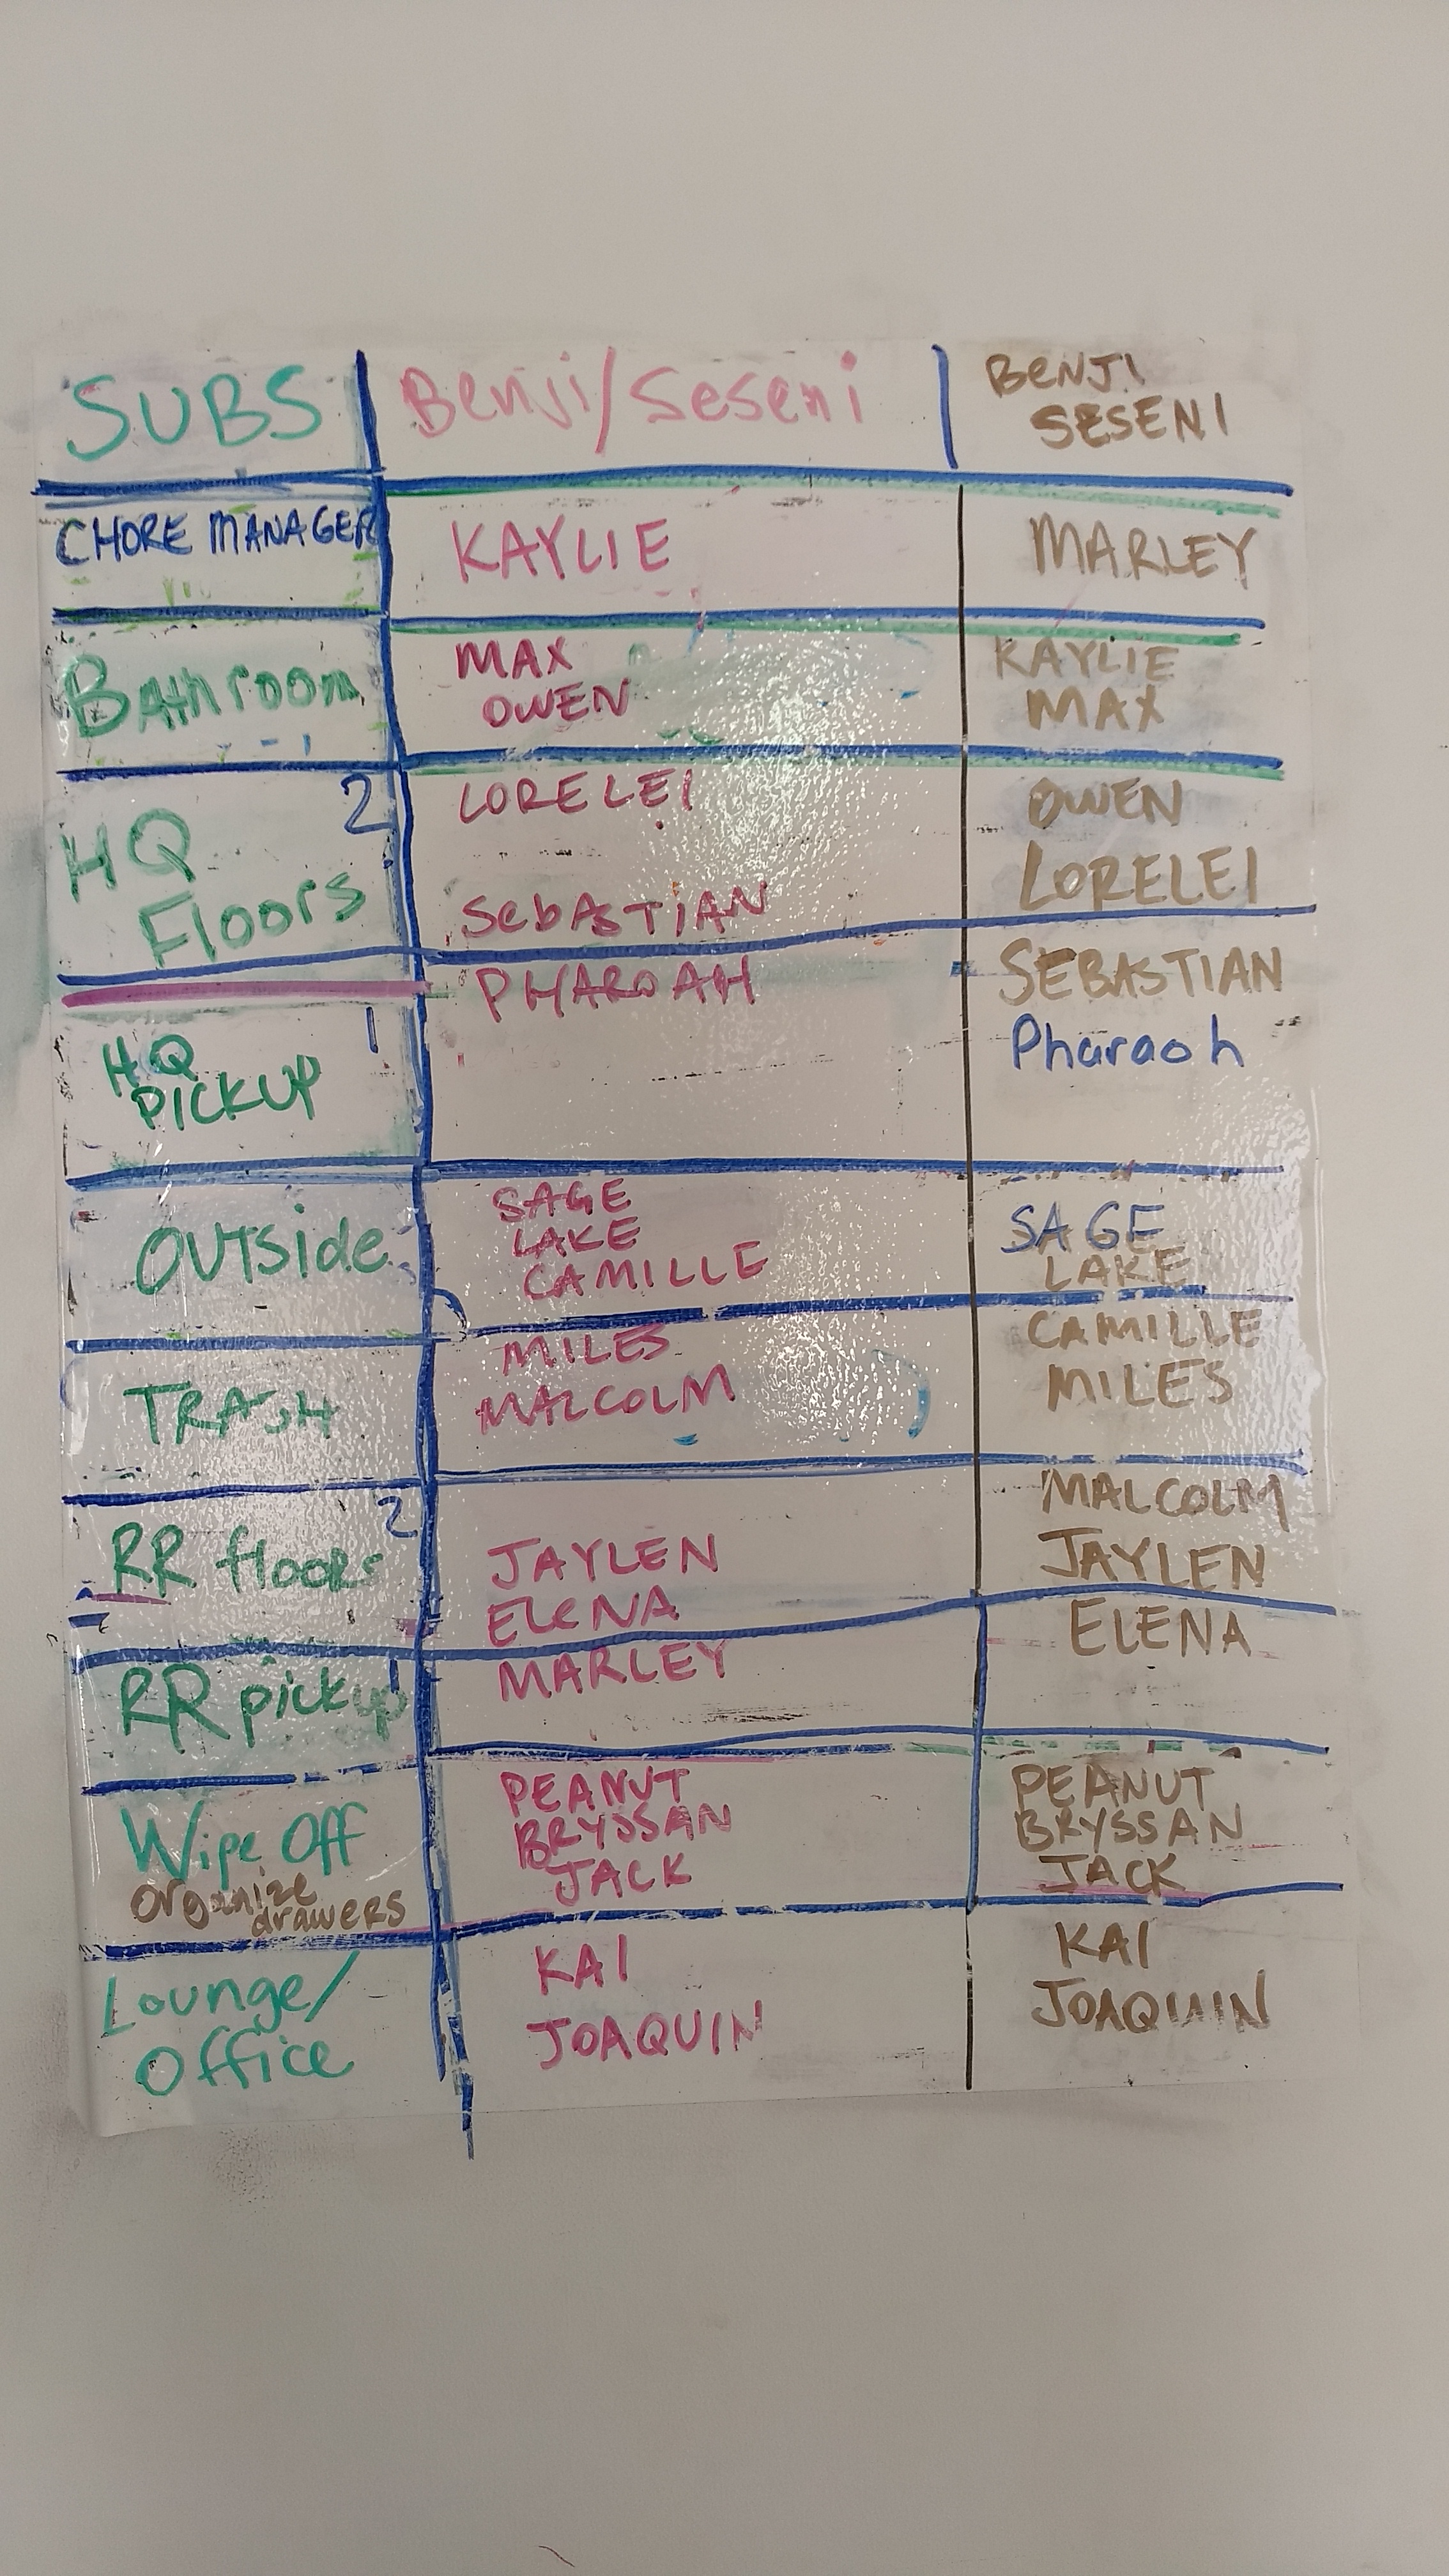 SUBS
Benji/Seseni
BENJI
SESENI
CHORE MANAGER
KAYLIE
MARLEY
Bathroom
MAX
OWEN
KAYLIE
MAX
HQ 2
Floors
LORELEI
SebASTiAN
OWEN
LORELEI
HQ 1
PICKUP
PHAROAH
SEBASTIAN
Pharaoh
OUTside
SAGE
LAKE
CAMILLE
SAGE
LAKE
TRASH
MILES
MALCOLM
CAMILLE
MILES
RR floors 2
JAYLEN
ELENA
MALCOLM
JAYLEN
RR pickup 1
MARLEY
ELENA
Wipe Off
Organize
drawers
PEANUT
BRYSSAN
JACK
PEANUT
BRYSSAN
JACK
Lounge/
Office
KAI
JOAQUIN
KAI
JOAQUIN